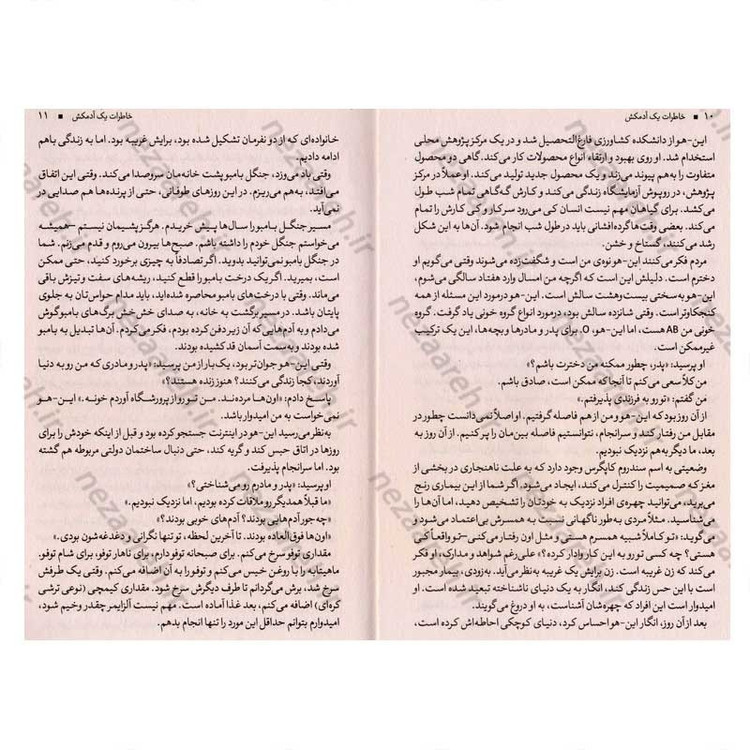 ۱۰ ■ خاطرات یک آدمکش
این-هو از دانشکده کشاورزی فارغ‌التحصیل شد و در یک مرکز پژوهش محلی
استخدام شد. او روی بهبود و ارتقاء انواع محصولات کار می‌کند. گاهی دو محصول
متفاوت را به‌هم پیوند می‌زند و یک محصول جدید تولید می‌کند. او عملاً در مرکز
پژوهش، در روپوش آزمایشگاه زندگی می‌کند و کارش گه‌گاهی تمام شب طول
می‌کشد. برای گیاهان مهم نیست انسان کی می‌رود سر کار و کی کارش را تمام
می‌کند. بعضی وقت‌ها گرده‌افشانی باید در طول شب انجام شود. آن‌ها به این شکل
رشد می‌کنند، گستاخ و خشن.
مردم فکر می‌کنند این-هو نوه‌ی من است و شگفت‌زده می‌شوند وقتی می‌گویم او
دخترم است. دلیلش این است که اگرچه من امسال وارد هفتاد سالگی می‌شوم،
این-هو به‌سختی بیست‌وهشت سالش است. این-هو در مورد این مسئله از همه
کنجکاوتر است. وقتی شانزده سالش بود، در مورد انواع گروه خونی یاد گرفت. گروه
خونی من AB هست، اما این-هو، O. برای پدر و مادرها و بچه‌ها، این یک ترکیب
غیرممکن است.
او پرسید: «پدر، چطور ممکنه من دخترت باشم؟»
من کلاً سعی می‌کنم تا آنجا که ممکن است، صادق باشم.
من گفتم: «تو رو به فرزندی پذیرفتم.»
از آن روز بود که این-هو و من از هم فاصله گرفتیم. او اصلاً نمی‌دانست چطور در
مقابل من رفتار کند و سرانجام، نتوانستیم فاصله بین‌مان را پر کنیم. از آن روز به
بعد، ما دیگر به‌هم نزدیک نبودیم.
وضعیتی به اسم سندروم کاپگرس وجود دارد که به علت ناهنجاری در بخشی از
مغز که صمیمیت را کنترل می‌کند، ایجاد می‌شود. اگر شما از این بیماری رنج
می‌برید، می‌توانید چهره‌ی افراد نزدیک به خودتان را تشخیص دهید، اما آن‌ها را
نمی‌شناسید. مثلاً مردی به‌طور ناگهانی نسبت به همسرش بی‌اعتماد می‌شود و
می‌گوید: «تو کاملاً شبیه همسرم هستی و مثل اون رفتار می‌کنی-تو واقعاً کی
هستی؟ چه کسی تو رو به این کار وادار کرده؟» علی‌رغم شواهد و مدارک، او فکر
می‌کند که زن غریبه است. زن برایش یک غریبه به‌نظر می‌آید. به‌زودی، بیمار مجبور
است با این حس زندگی کند، انگار به یک دنیای ناشناخته تبعید شده است. او
امیدوار است این افراد که چهره‌شان آشناست، به او دروغ می‌گویند.
بعد از آن روز، انگار این-هو احساس کرد، دنیای کوچکی احاطه‌اش کرده است،
خاطرات یک آدمکش ■ ۱۱
خانواده‌ای که از دو نفرمان تشکیل شده بود، برایش غریبه بود. اما به زندگی باهم
ادامه دادیم.
وقتی باد می‌وزد، جنگل بامبو پشت خانه‌مان سروصدا می‌کند. وقتی این اتفاق
می‌افتد، به‌هم می‌ریزم. در این روزهای طوفانی، حتی از پرنده‌ها هم صدایی در
نمی‌آید.
مسیر جنگل بامبو را سال‌ها پیش خریدم. هرگز پشیمان نیستم -همیشه
می‌خواستم جنگل خودم را داشته باشم. صبح‌ها بیرون می‌روم و قدم می‌زنم. شما
در جنگل بامبو نمی‌توانید بدوید. اگر تصادفاً به چیزی برخورد کنید، حتی ممکن
است، بمیرید. اگر یک درخت بامبو را قطع کنید، ریشه‌های سفت و تیزش باقی
می‌ماند. وقتی با درخت‌های بامبو محاصره شده‌اید، باید مدام حواس‌تان به جلوی
پایتان باشد. در مسیر برگشت به خانه، به صدای خش‌خش برگ‌های بامبو گوش
می‌دادم و به آدم‌هایی که آن زیر دفن کرده بودم، فکر می‌کردم. آن‌ها تبدیل به بامبو
شده بودند و به‌سمت آسمان قد کشیده بودند.
وقتی این-هو جوان‌تر بود، یک‌بار از من پرسید: «پدر و مادری که من رو به دنیا
آوردند، کجا زندگی می‌کنند؟ هنوز زنده هستند؟»
پاسخ دادم: «اون‌ها مرده‌ند. من تو رو از پرورشگاه آوردم خونه.» این-هو
نمی‌خواست به من امیدوار باشد.
به‌نظر می‌رسید این-هو در اینترنت جستجو کرده بود و قبل از اینکه خودش را برای
روزها در اتاق حبس کند و گریه کند، حتی دنبال ساختمان دولتی مربوطه هم گشته
بود. اما سرانجام پذیرفت.
او پرسید: «پدر و مادرم رو می‌شناختی؟»
«ما قبلاً همدیگر رو ملاقات کرده بودیم، اما نزدیک نبودیم.»
«چه جور آدم‌هایی بودند؟ آدم‌های خوبی بودند؟»
«اون‌ها فوق‌العاده بودند. تا آخرین لحظه، تو تنها نگرانی و دغدغه‌شون بودی.»
مقداری توفو سرخ می‌کنم. برای صبحانه توفو دارم، برای ناهار توفو، برای شام توفو.
ماهیتابه را با روغن خیس می‌کنم و توفو را به آن اضافه می‌کنم. وقتی یک طرفش
سرخ شد، برش می‌گردانم تا طرف دیگرش سرخ شود. مقداری کیمچی (نوعی ترشی
کره‌ای) اضافه می‌کنم، بعد غذا آماده است. مهم نیست آلزایمر چقدر وخیم شود،
امیدوارم بتوانم حداقل این مورد را تنها انجام بدهم.
nezaareh.ir